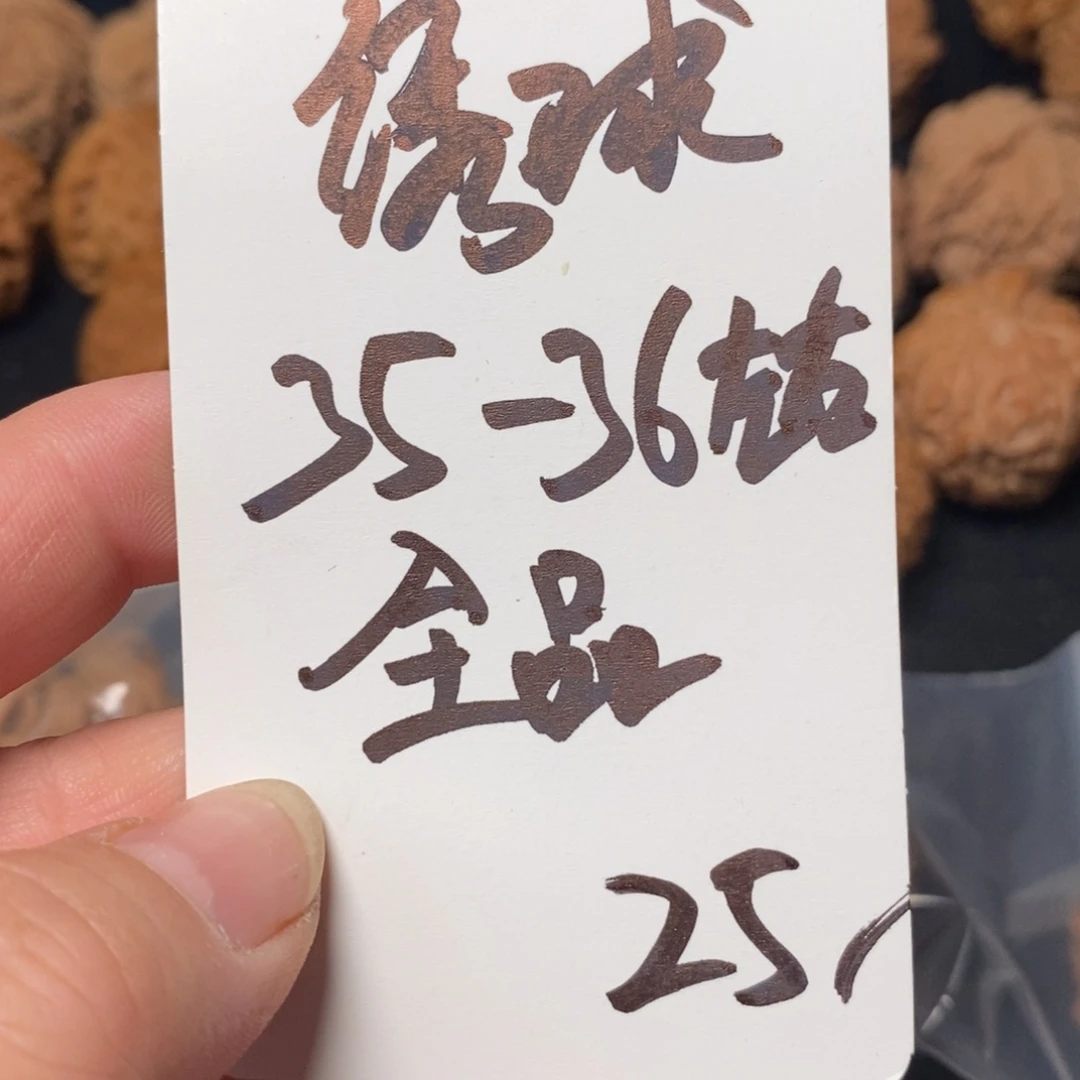 绣球
35-36钻
全品
25